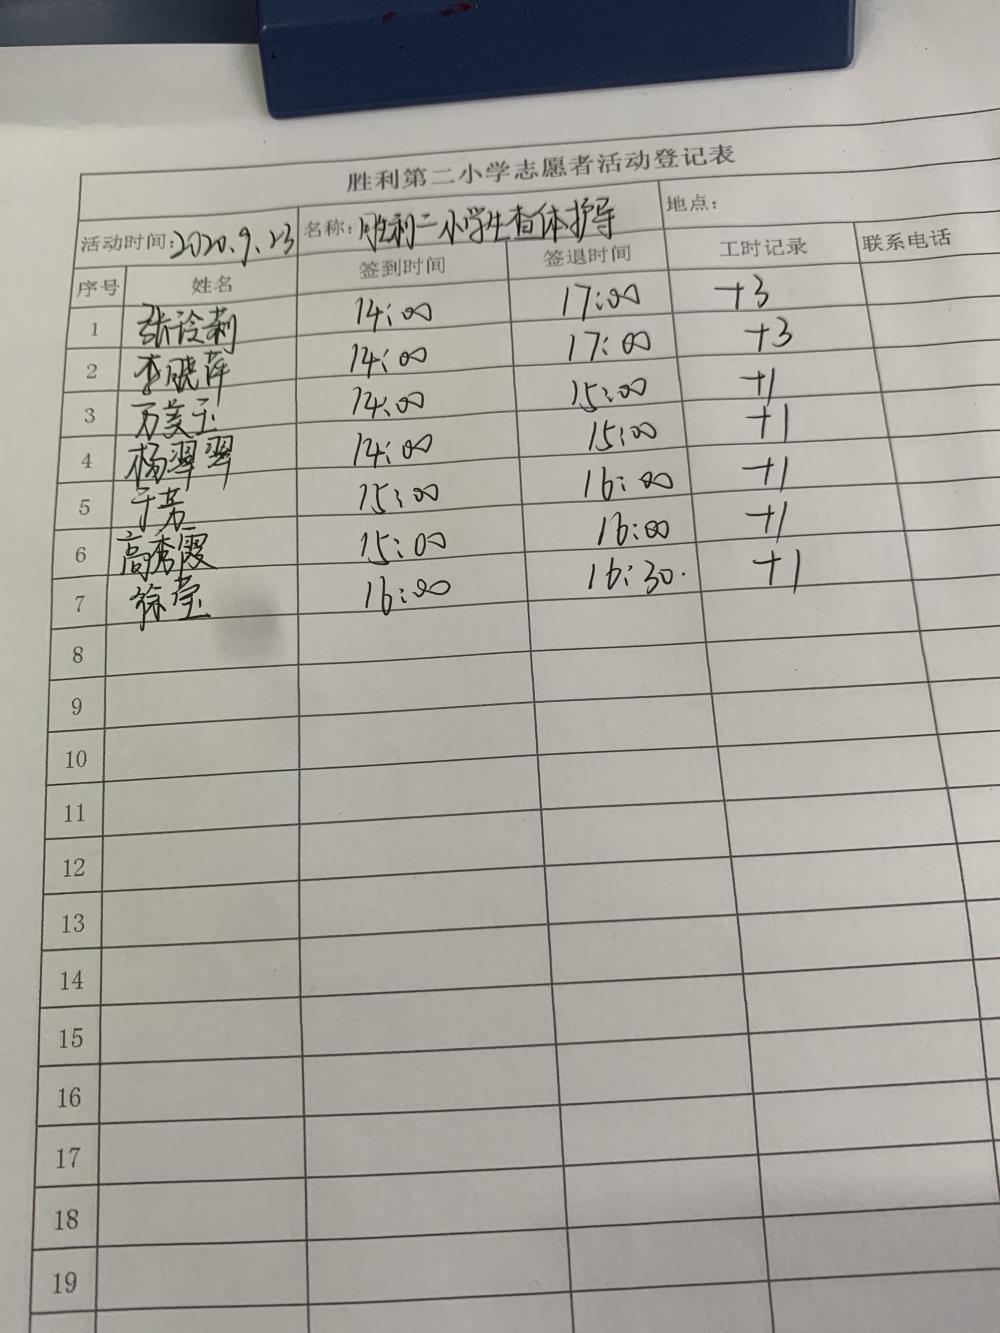 胜利第二小学志愿者活动登记表
活动时间:2020.9.23 名称:胜利二小学生查体护导 地点:
序号 姓名 签到时间 签退时间 工时记录 联系电话
1 张玲莉 14:00 17:00 +3
2 李晓萍 14:00 17:00 +3
3 万美玉 14:00 15:00 +1
4 杨翠翠 14:00 15:00 +1
5 于芳 15:00 16:00 +1
6 高秀霞 15:00 16:00 +1
7 徐莹 16:00 16:30. +1
8
9
10
11
12
13
14
15
16
17
18
19